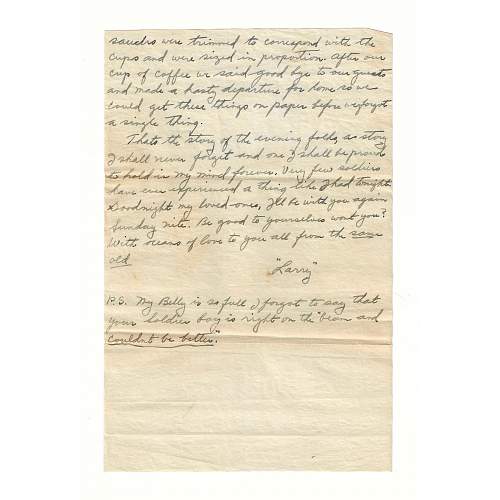 saucers were trimmed to correspond with the
cups and were sized in proportion. After our
cup of coffee we said good bye to our guests
and made a hasty departure for home so we
could get these things on paper before we forgot
a single thing.
Thats the story of the evening folks, a story
I shall never forget and one I shall be proud
to hold in my mind forever. Very few soldiers
have ever experienced a thing like I had tonight.
Goodnight my loved ones, I'll be with you again
Sunday nite. Be good to yourselves wont you?
With oceans of love to you all from the same
old
"Larry"
P.S. My Belly is so full I forgot to say that
your soldier boy is right on the "beam and
couldn't be better".